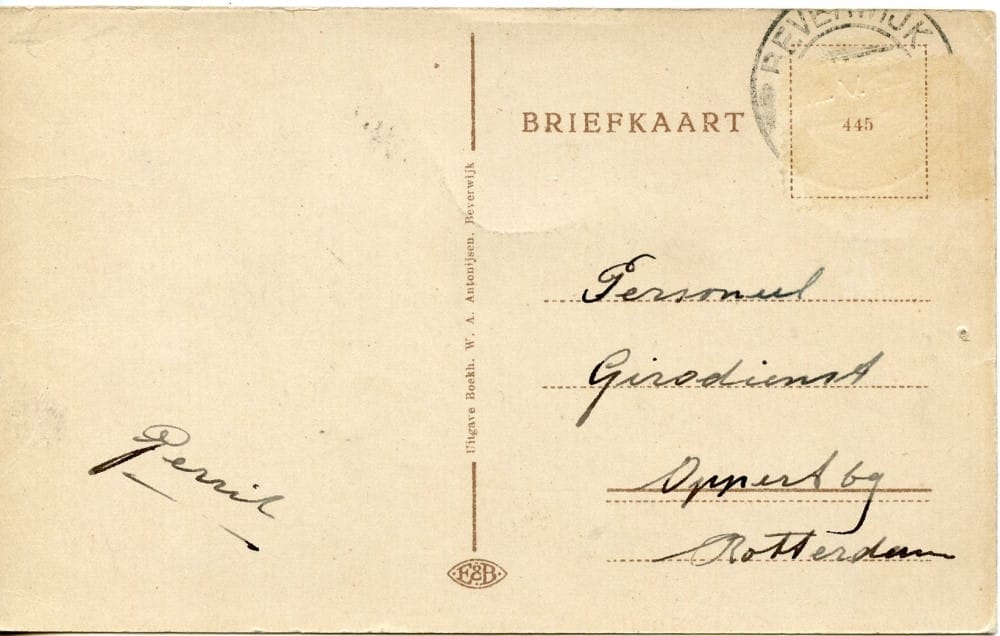 BEVERWIJK
BRIEFKAART
445
Uitgave Boekh. W. A. Antonijsen, Beverwijk
Personeel
Girodienst
Oppert 69
Rotterdam
Gerrit
E&B